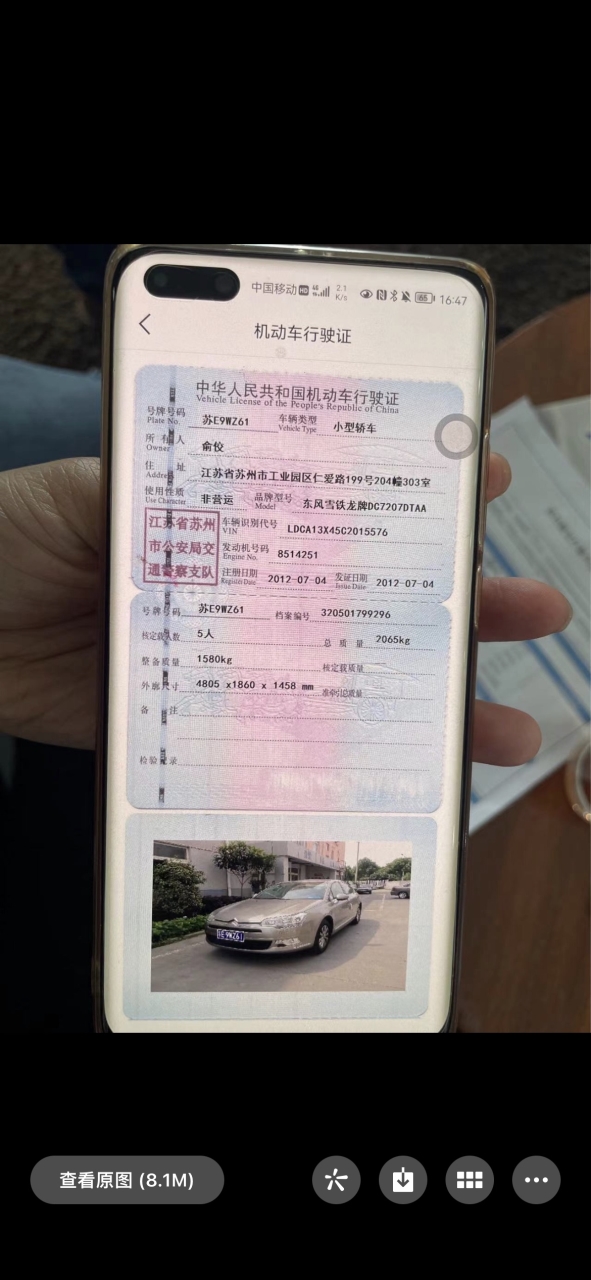 中国移动 HD 4G 2.1 K/s 65 16:47
机动车行驶证
中华人民共和国机动车行驶证
Vehicle License of the People's Republic of China
号牌号码 Plate No. 苏E9WZ61 车辆类型 Vehicle Type 小型轿车
所有人 Owner 俞佼
住址 Address 江苏省苏州市工业园区仁爱路199号204幢303室
使用性质 Use Character 非营运 品牌型号 Model 东风雪铁龙牌DC7207DTAA
江苏省苏州
市公安局交
通警察支队
车辆识别代号 VIN LDCA13X45C2015576
发动机号码 Engine No. 8514251
注册日期 Register Date 2012-07-04 发证日期 Issue Date 2012-07-04
号牌号码 苏E9WZ61 档案编号 320501799296
核定载人数 5人 总质量 2065kg
整备质量 1580kg 核定载质量
外廓尺寸 4805 x1860 x 1458 mm 准牵引总质量
备注
检验记录
苏E 9WZ61
查看原图 (8.1M)